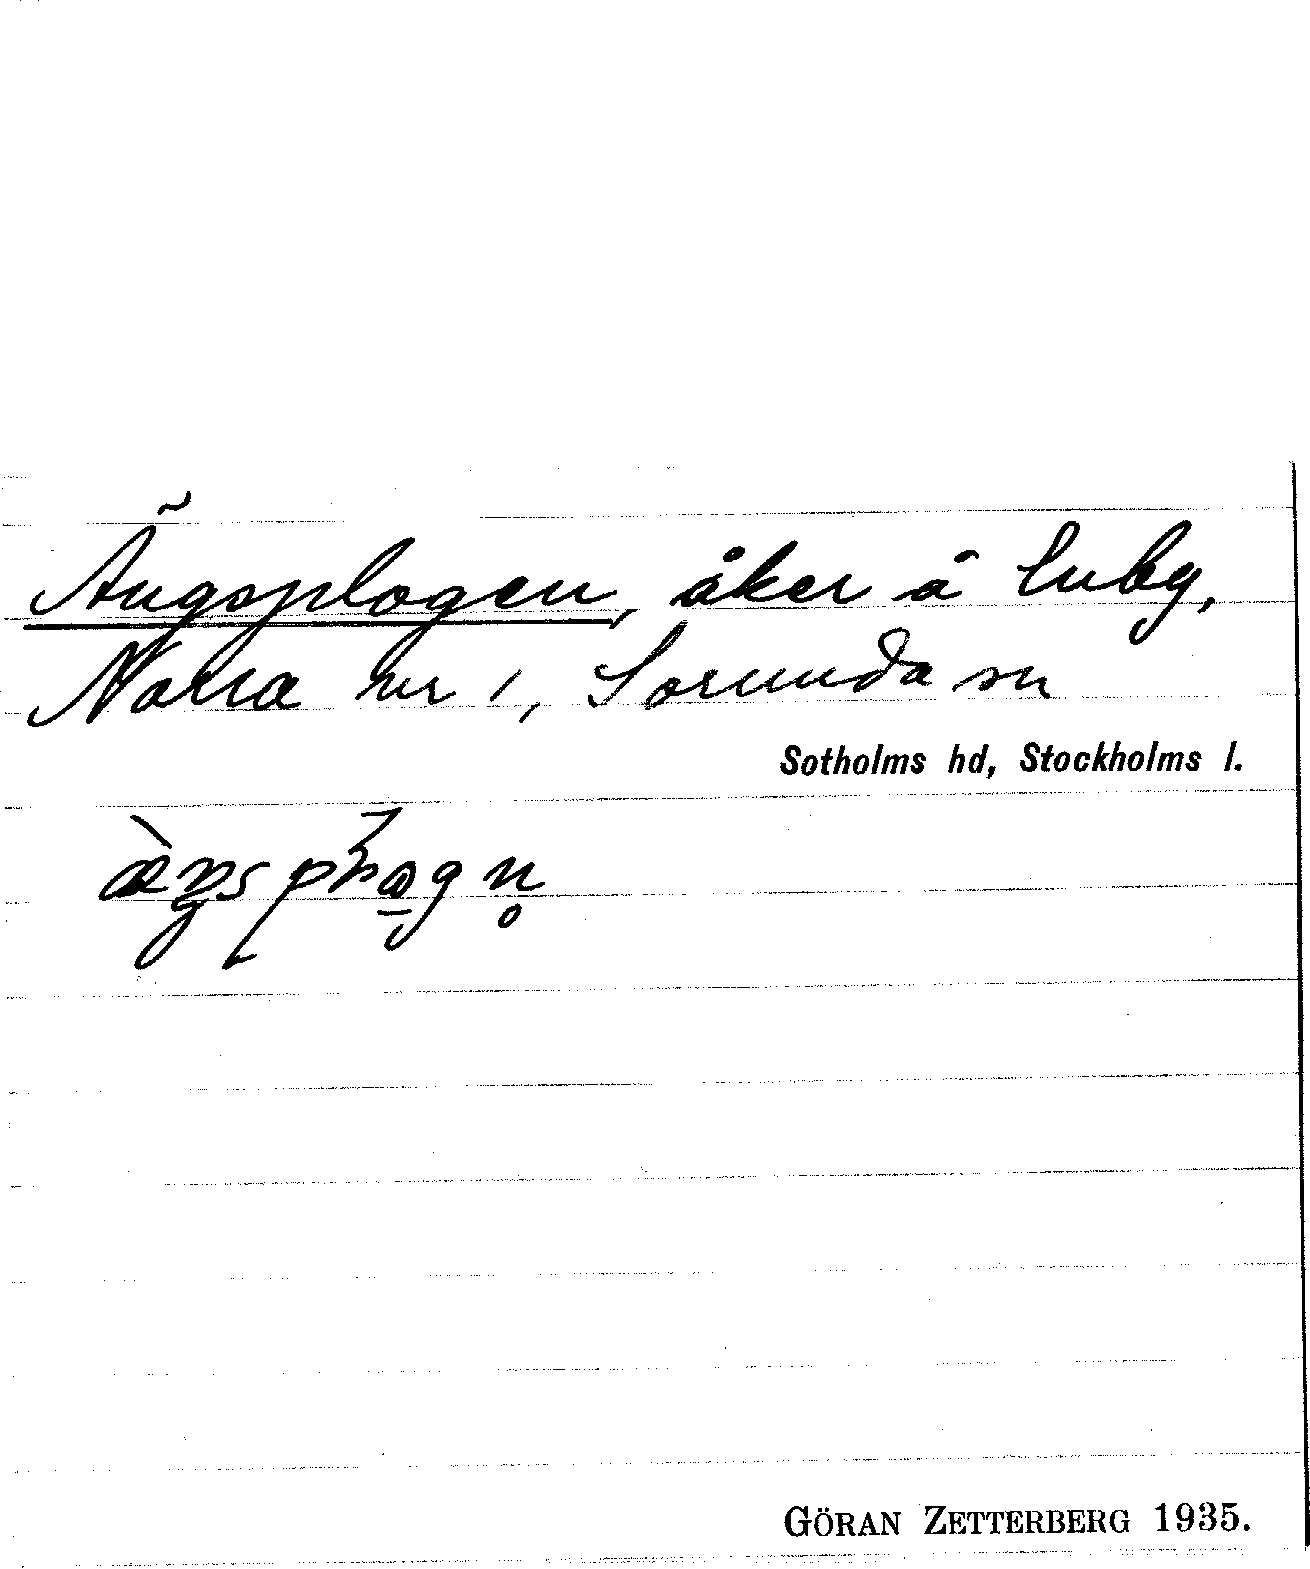 Ängsplogen, åker å Luby,
Norra nr 1, Sorunda sn
Sotholms hd, Stockholms l.
GÖRAN ZETTERBERG 1935.